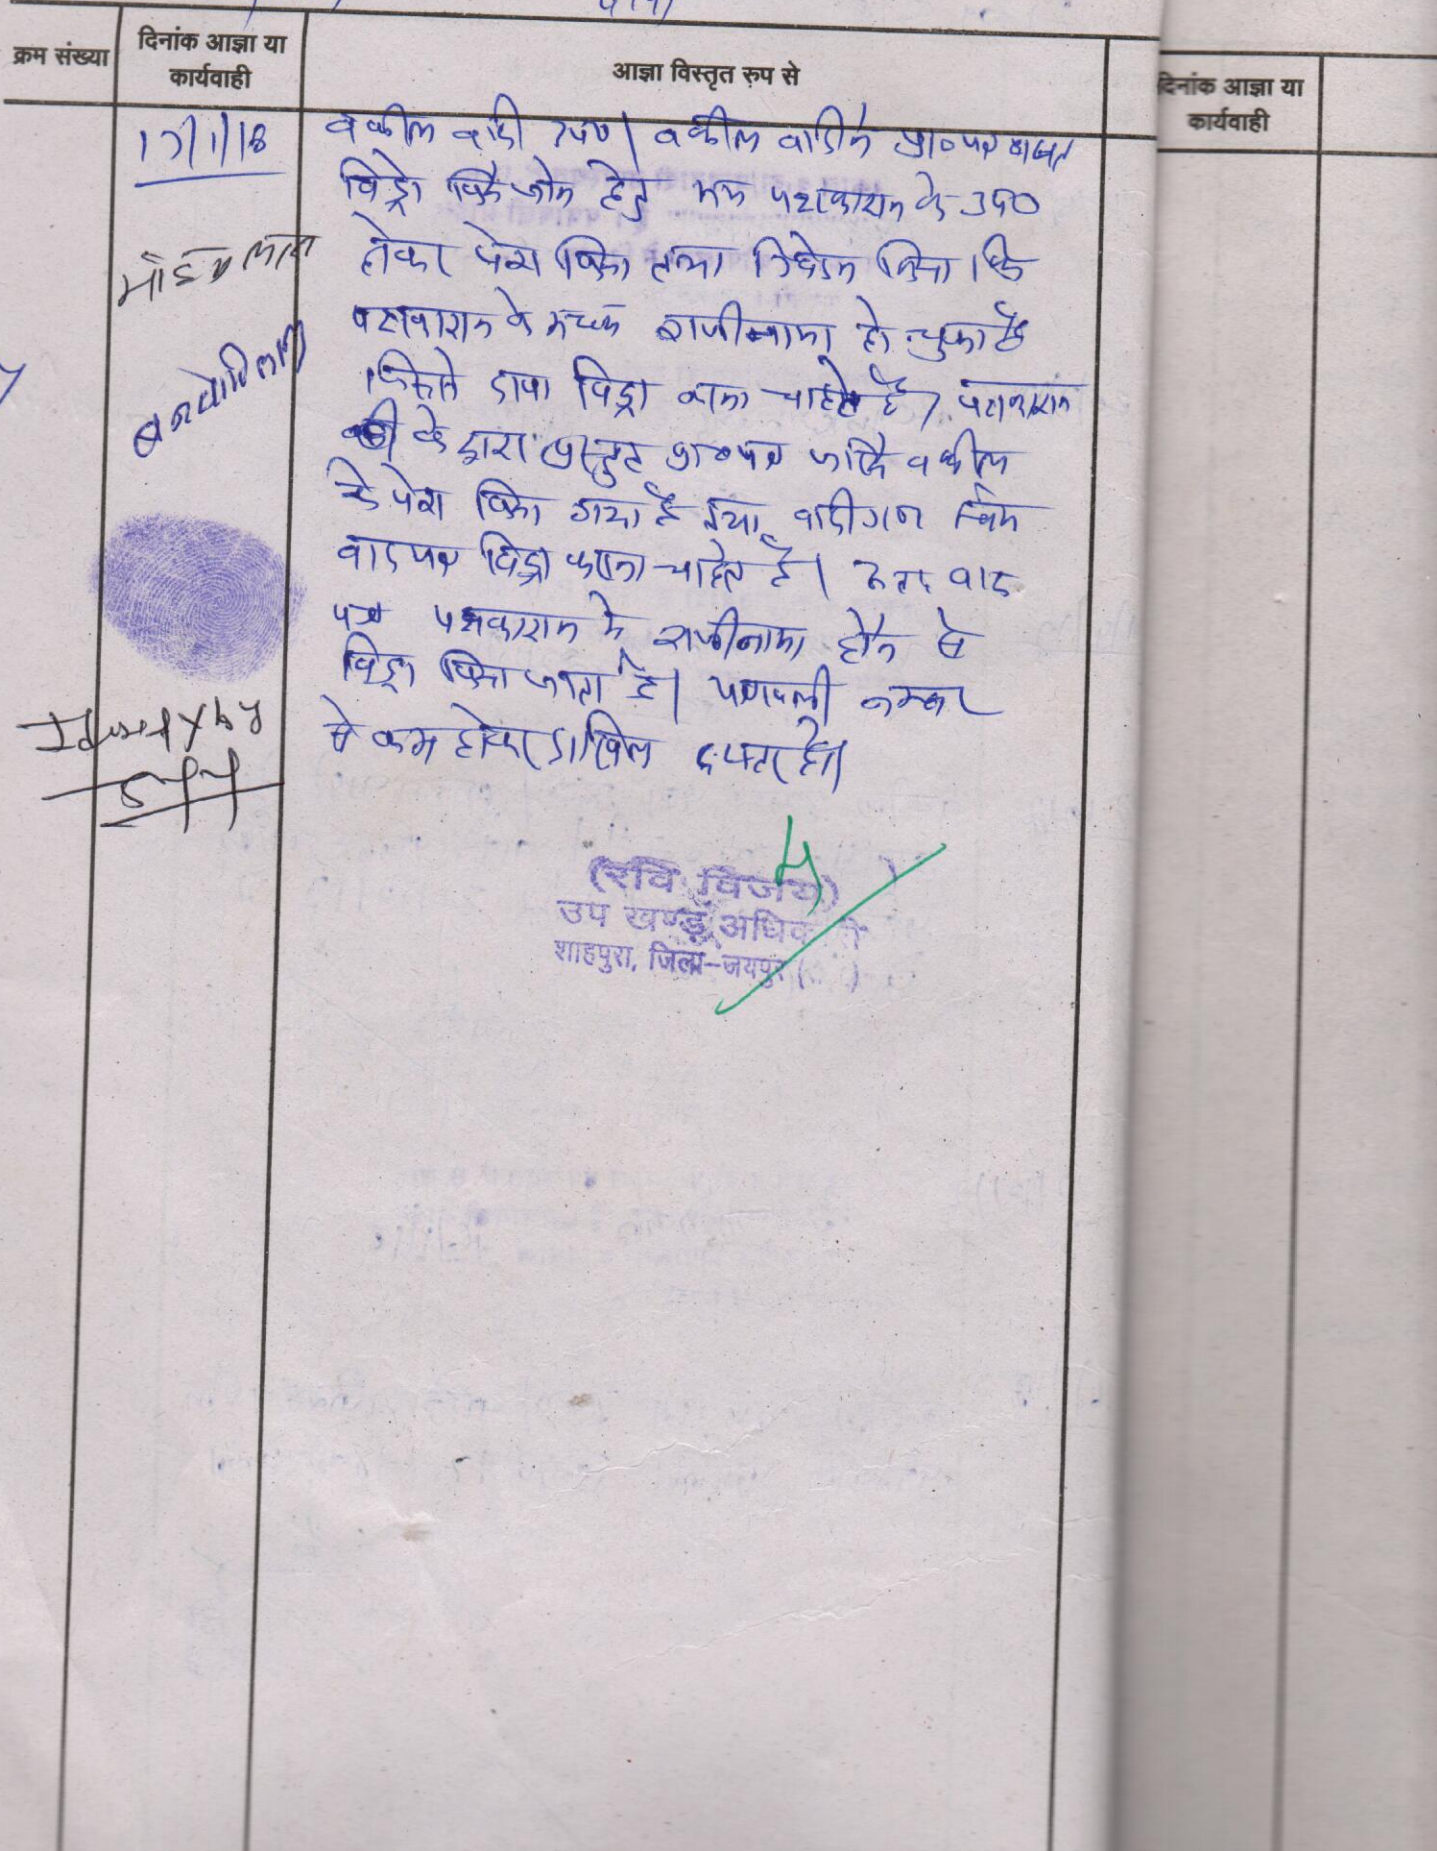 क्रम संख्या
दिनांक आज्ञा या
कार्यवाही
आज्ञा विस्तृत रुप से
दिनांक आज्ञा या
कार्यवाही
17/1/18
वकील वादी उप०। वकील वादी ने प्रा०पत्र बाबत
विड्रो किये जाने हेतु मय पक्षकारान के उप०
होकर पेश किया तथा निवेदन किया कि
पक्षकारान के मध्य राजीनामा हो चुका है
जिससे दावा विड्रा करना चाहते है। पक्षकारान
के द्वारा प्रस्तुत प्रा०पत्र जरिये वकील
के पेश किया गया है तथा वादीगण
वादपत्र विड्रा करना चाहते है। अतः वाद
पत्र पक्षकारान मे राजीनामा होने से
विड्रा किया जाता है। पत्रावली नम्बर
से कम होकर दाखिल दफ्तर हो।
मोहन लाल
बनवारीलाल
Identify by
(रवि विजय)
उप खण्ड अधिकारी
शाहपुरा, जिला-जयपुर